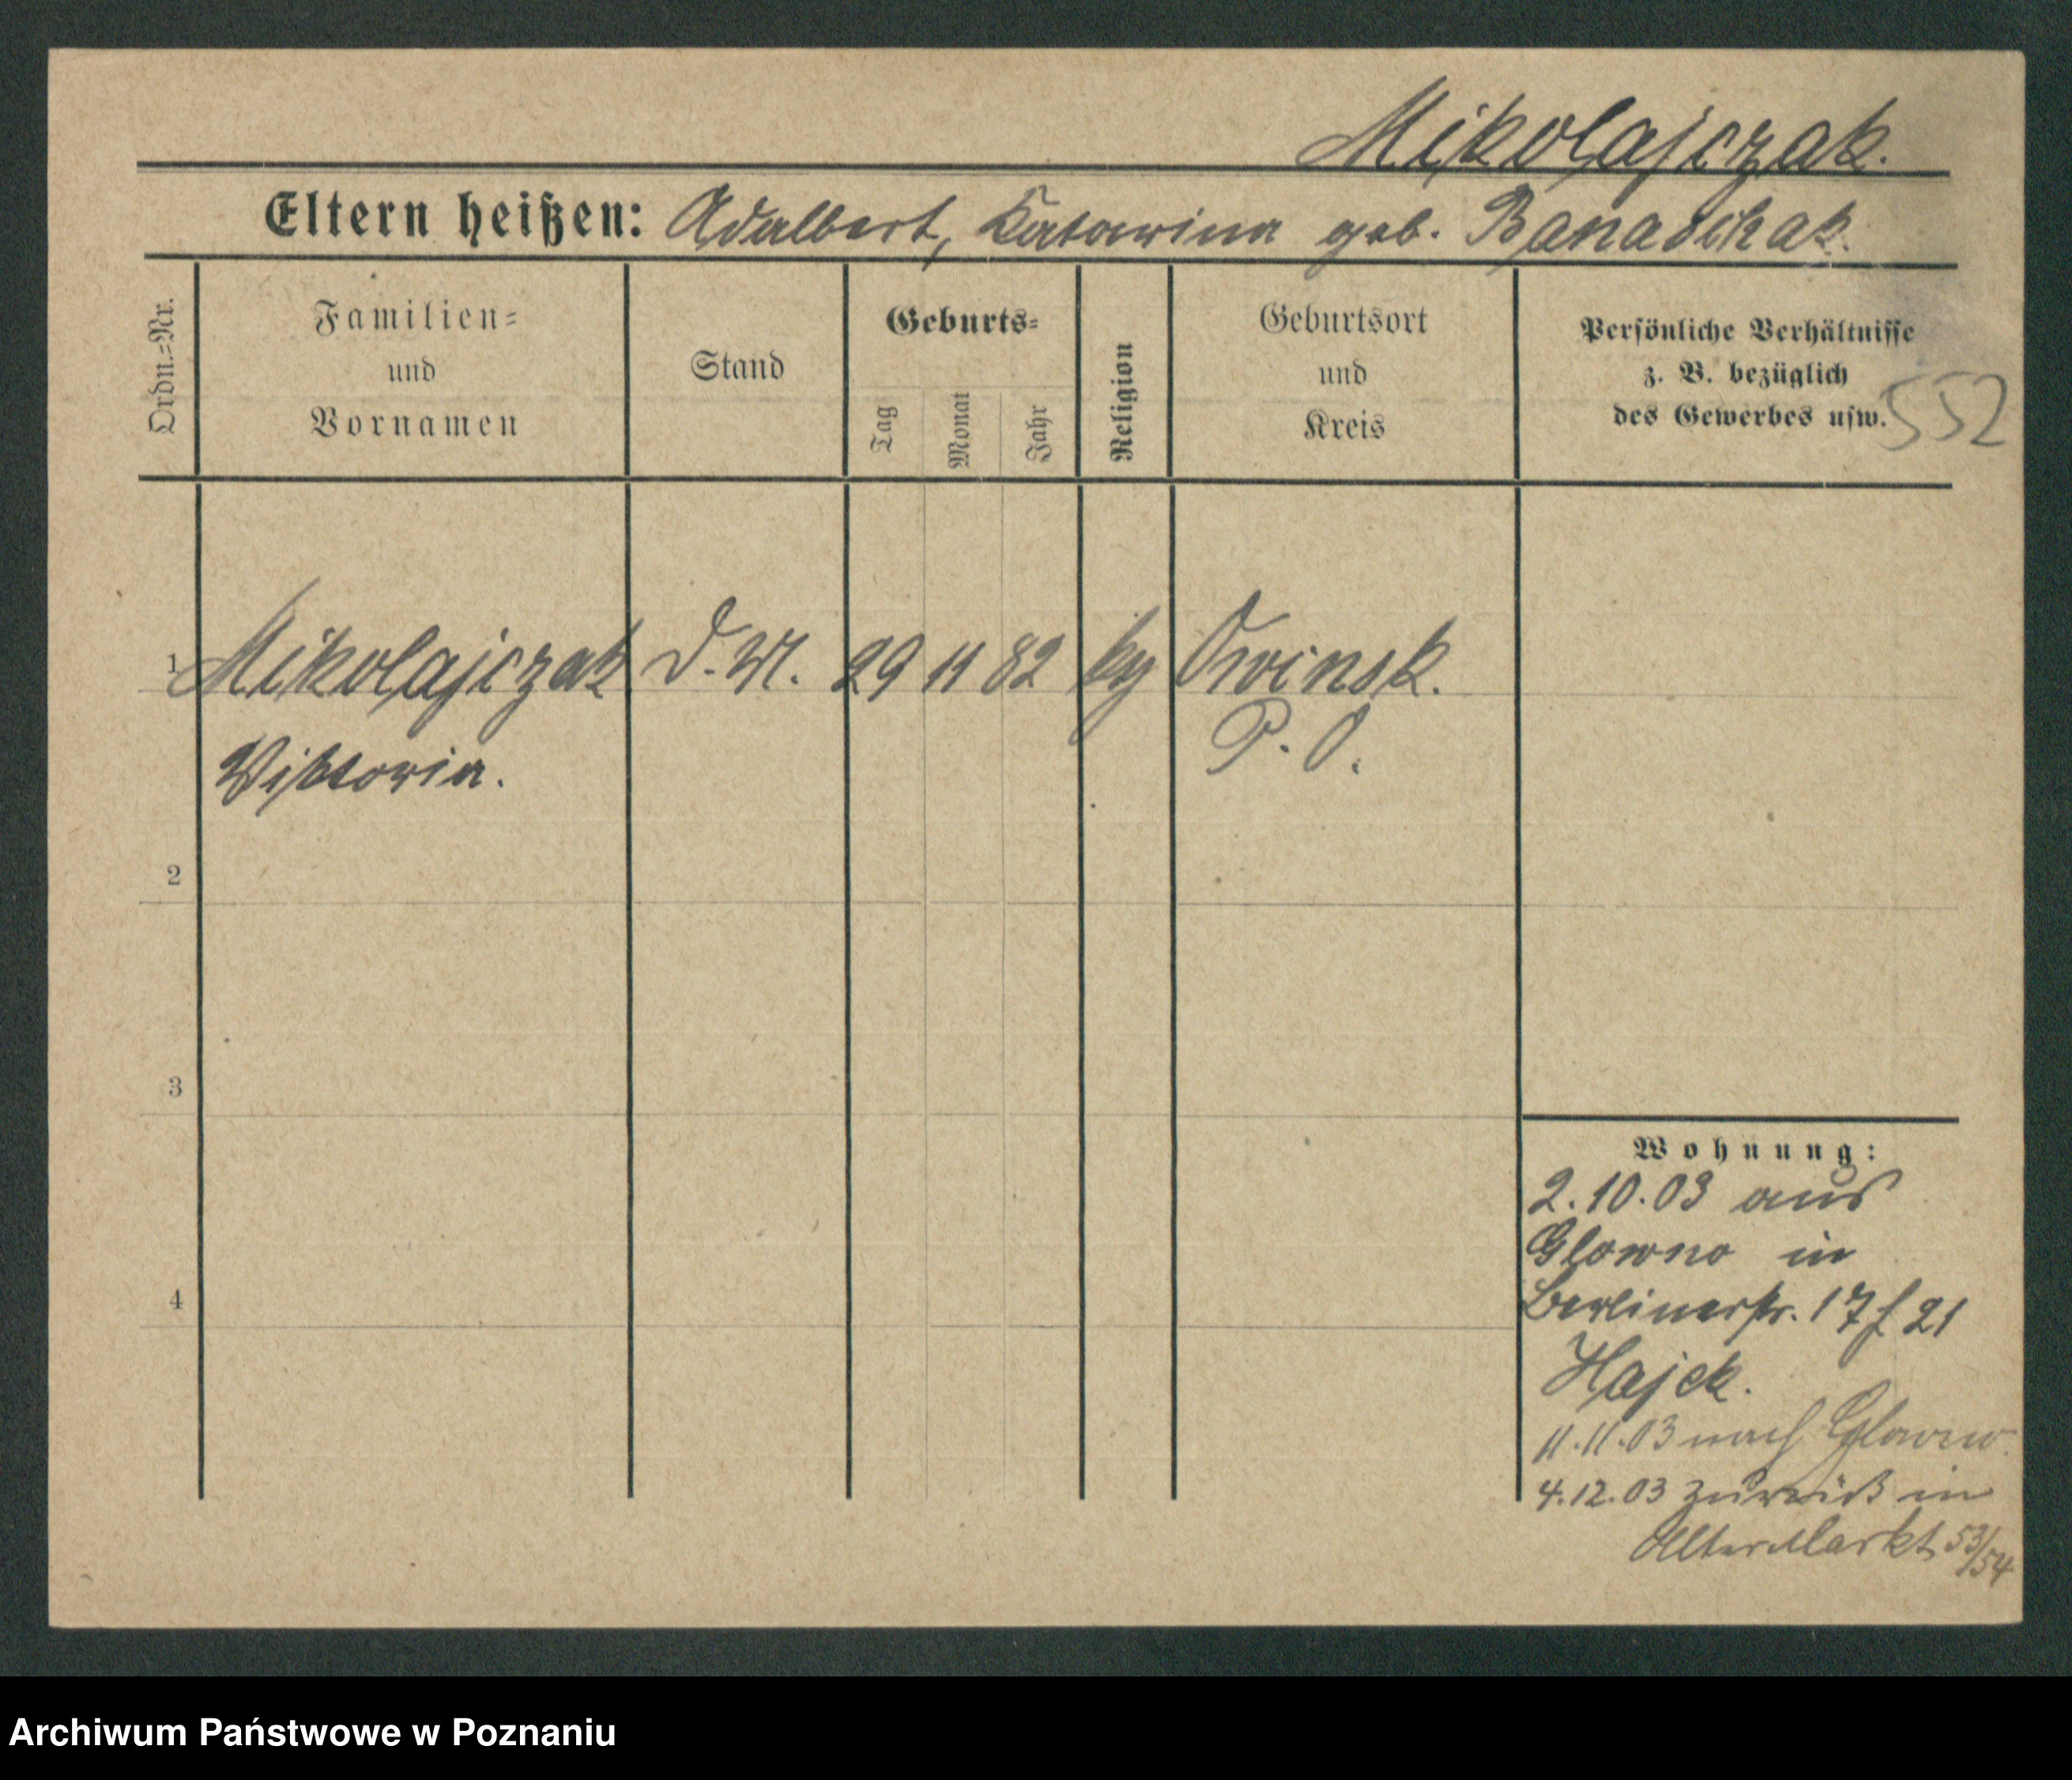 Mikolajczak.
Eltern heißen: Adalbert, Katarina geb. Banaschak.
Ordn.=Nr.
Familien=
und
Vornamen
Stand
Geburts=
Tag
Monat
Jahr
Religion
Geburtsort
und
Kreis
Persönliche Verhältnisse
z. B. bezüglich
des Gewerbes usw.
552
1 Mikolajczak D. M. 29 11 82 kg Owinsk.
Viktoria. P. O.
2
3
4
Wohnung:
2.10.03 aus
Glowno in
Berlinerstr. 17 f 21
Hajek.
11.11.03 nach Glowno.
4.12.03 zurück in
Alter Markt 53/54
Archiwum Państwowe w Poznaniu